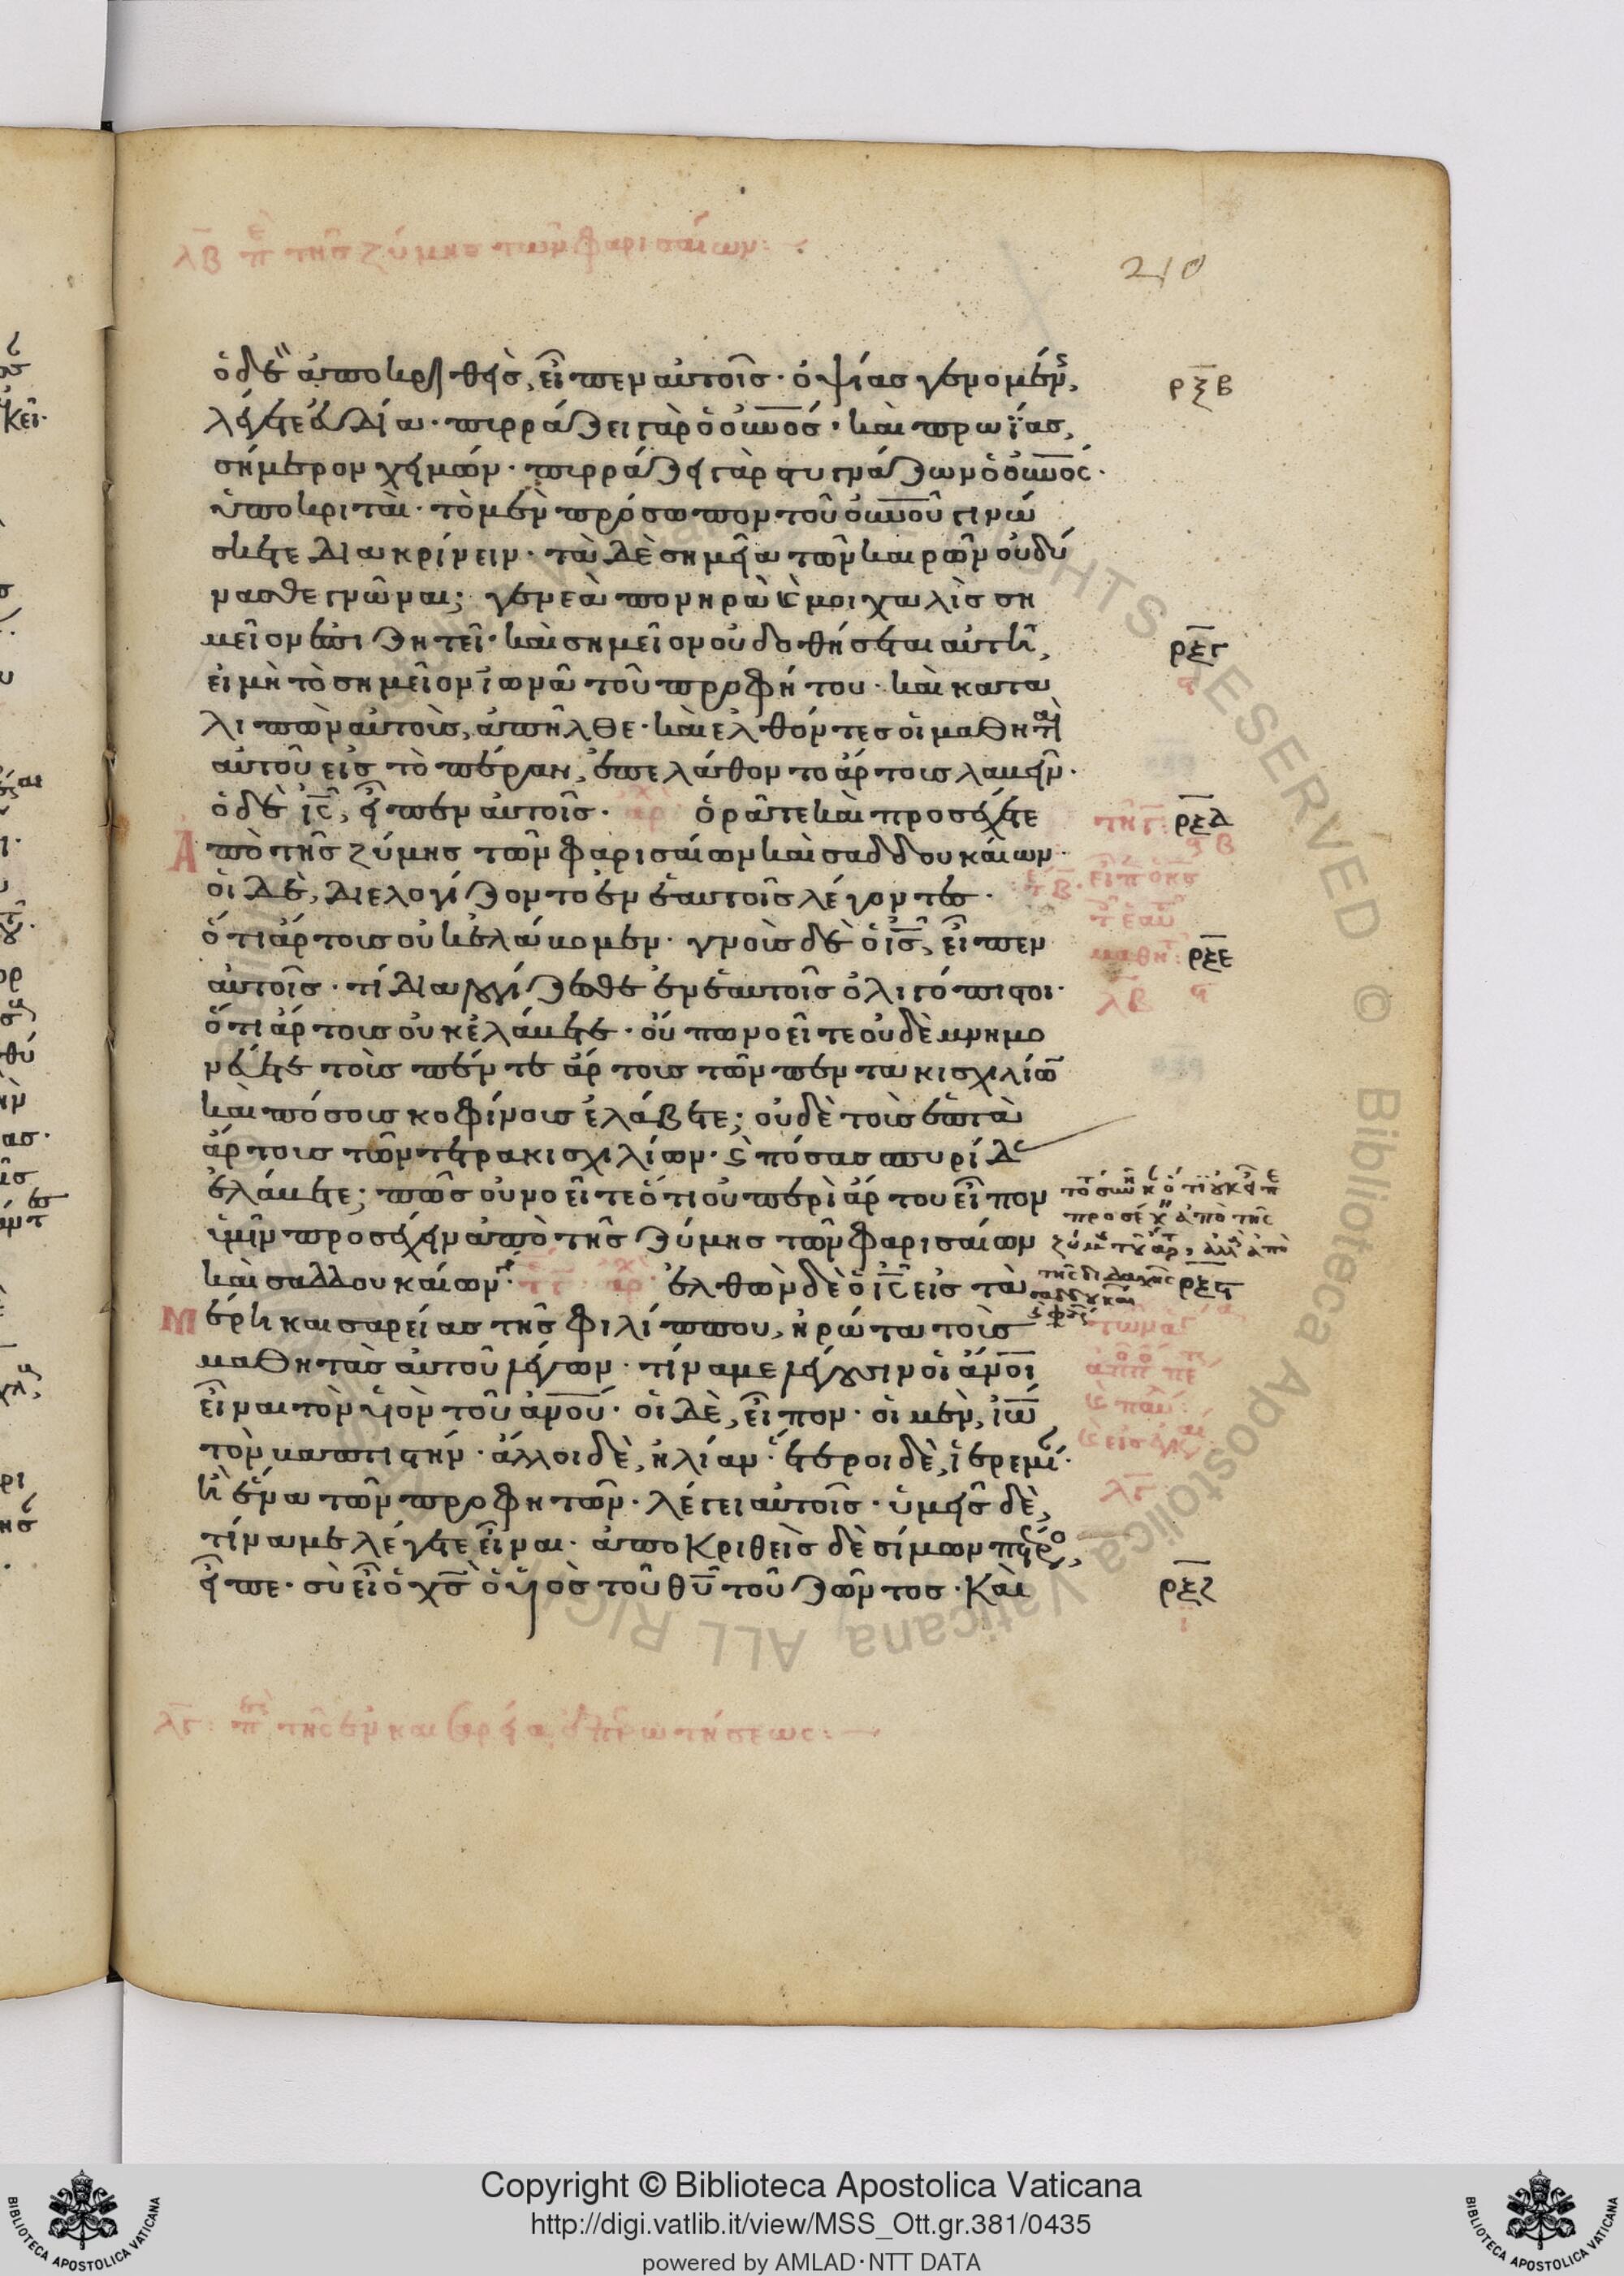 λβ πε τῆς ζύμης τῶν φαρισαίων:
210
ὁ δὲ ἀποκριθεὶς, εἶπεν αὐτοῖς· ὀψίας γενομένης,
ρξβ
λέγετε εὐδία· πυρράζει γὰρ ὁ οὐνός· καὶ πρωΐας,
σήμερον χειμών· πυρράζει γὰρ στυγνάζων ὁ οὐνός·
ὑποκριταὶ· τὸ μὲν πρόσωπον τοῦ οὐνοῦ γινώ
σκετε διακρίνειν· τὰ δὲ σημεῖα τῶν καιρῶν οὐ δύ
νασθε γνῶναι; γενεὰ πονηρὰ καὶ μοιχαλὶς ση
μεῖον ἐπιζητεῖ· καὶ σημεῖον οὐ δοθήσεται αὐτῆ,
ρξγ
εἰ μὴ τὸ σημεῖον ἰωνᾶ τοῦ προφήτου· καὶ κατα
λιπὼν αὐτοὺς, ἀπῆλθε· καὶ ἐλθόντες οἱ μαθηταὶ
αὐτοῦ εἰς τὸ πέραν, ἐπελάθοντο ἄρτους λαβεῖν·
ὁ δὲ ις, εἶπεν αὐτοῖς· ὁρᾶτε καὶ προσέχετε
ρξδ
ἀπὸ τῆς ζύμης τῶν φαρισαίων καὶ σαδδουκαίων·
οἱ δὲ, διελογίζοντο ἐν ἑαυτοῖς λέγοντες·
ὅτι ἄρτους οὐκ ἐλάβομεν· γνοὺς δὲ ὁ ις, εἶπεν
ρξε
αὐτοῖς· τί διαλογίζεσθε ἐν ἑαυτοῖς ὀλιγόπιστοι·
λβ
ὅτι ἄρτους οὐκ ἐλάβετε· οὔπω νοεῖτε οὐδὲ μνημο
νεύετε τοὺς πέντε ἄρτους τῶν πεντακισχιλίων
καὶ πόσους κοφίνους ἐλάβετε; οὐδὲ τοὺς ἑπτὰ
ἄρτους τῶν τετρακισχιλίων· καὶ πόσας σπυρίδας
ἐλάβετε; πῶς οὐ νοεῖτε ὅτι οὐ περὶ ἄρτου εἶπον
ὑμῖν προσέχειν ἀπὸ τῆς ζύμης τῶν φαρισαίων
καὶ σαδδουκαίων· ἐλθὼν δὲ ὁ ις εἰς τὰ
ρξς
μέρη καισαρείας τῆς φιλίππου, ἠρώτα τοὺς
μαθητὰς αὐτοῦ λέγων· τίνα με λέγουσιν οἱ ἄνοι
εἶναι τὸν υἱὸν τοῦ ἀνου· οἱ δὲ, εἶπον· οἱ μὲν, ἰω
τὸν βαπτιστήν· ἄλλοι δὲ, ἠλίαν· ἕτεροι δὲ, ἱερεμίαν·
ἢ ἕνα τῶν προφητῶν· λέγει αὐτοῖς· ὑμεῖς δὲ,
λγ
τίνα με λέγετε εἶναι· ἀποκριθεὶς δὲ σίμων πέτρος,
εἶπε· σὺ εἶ ὁ χς ὁ υἱὸς τοῦ θυ τοῦ ζῶντος· Καὶ
ρξζ
λγ: πε τῆς ἐν καισαρεία ἐπερωτήσεως:
Copyright © Biblioteca Apostolica Vaticana
http://digi.vatlib.it/view/MSS_Ott.gr.381/0435
powered by AMLAD·NTT DATA